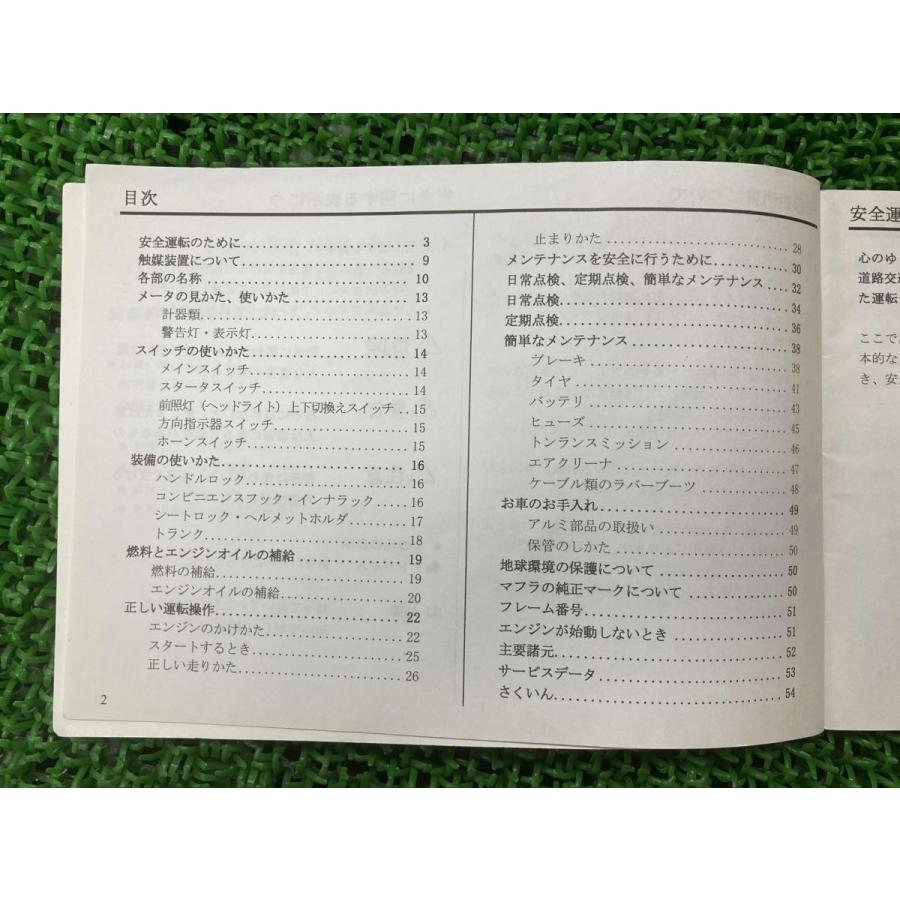 目次
安全運転のために 3
触媒装置について 9
各部の名称 10
メータの見かた、使いかた 13
計器類 13
警告灯・表示灯 13
スイッチの使いかた 14
メインスイッチ 14
スタータスイッチ 14
前照灯（ヘッドライト）上下切換えスイッチ 15
方向指示器スイッチ 15
ホーンスイッチ 15
装備の使いかた 16
ハンドルロック 16
コンビニエンスフック・インナラック 16
シートロック・ヘルメットホルダ 17
トランク 18
燃料とエンジンオイルの補給 19
燃料の補給 19
エンジンオイルの補給 20
正しい運転操作 22
エンジンのかけかた 22
スタートするとき 25
正しい走りかた 26
2
止まりかた 28
メンテナンスを安全に行うために 30
日常点検、定期点検、簡単なメンテナンス 32
日常点検 34
定期点検 36
簡単なメンテナンス 38
ブレーキ 38
タイヤ 41
バッテリ 43
ヒューズ 45
トンランスミッション 46
エアクリーナ 47
ケーブル類のラバーブーツ 48
お車のお手入れ 49
アルミ部品の取扱い 49
保管のしかた 50
地球環境の保護について 50
マフラの純正マークについて 50
フレーム番号 51
エンジンが始動しないとき 51
主要諸元 52
サービスデータ 53
さくいん 54
安全運
心のゆ
道路交通
た運転
ここで
本的な
き、安